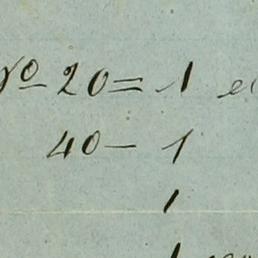 No 20= 1
40- 1
1